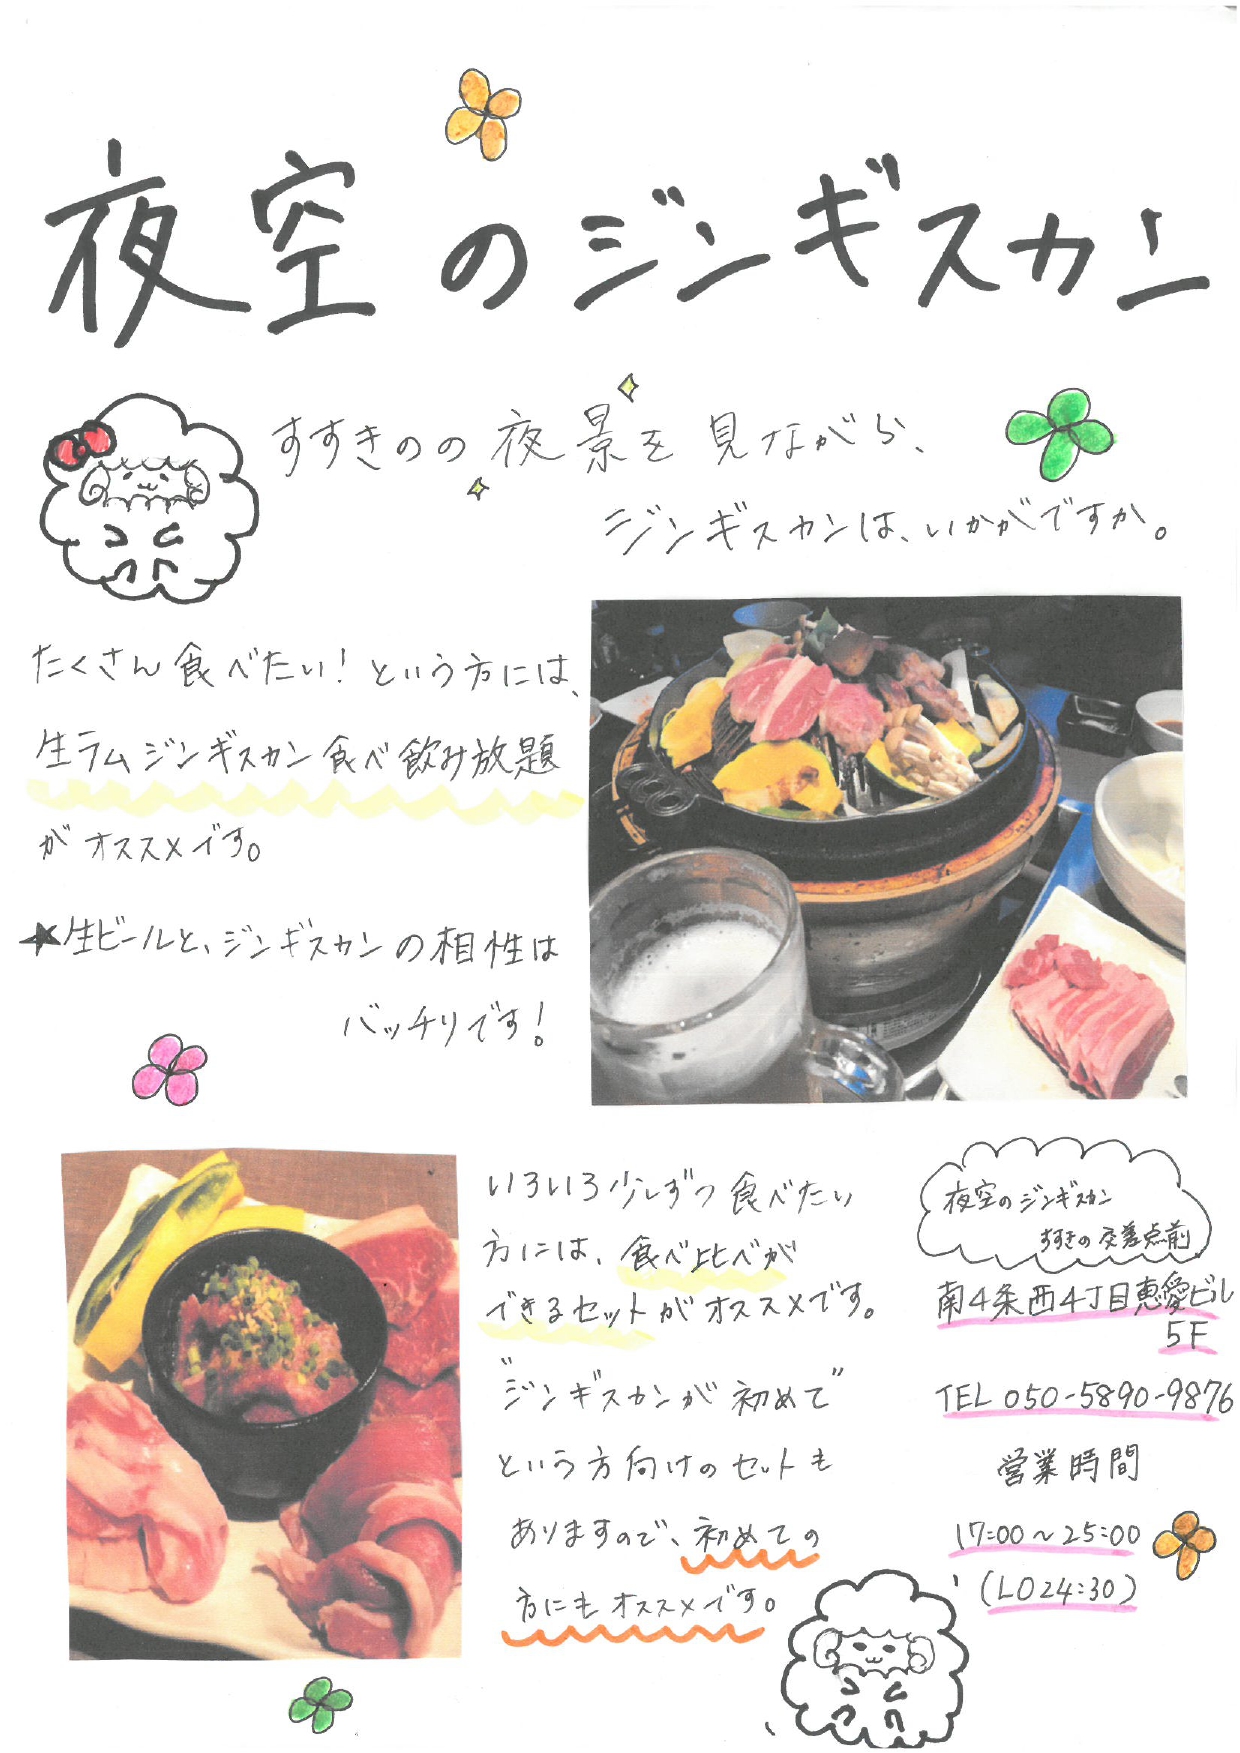 夜空のジンギスカン
すすきのの夜景を見ながら、
ジンギスカンは、いかがですか。
たくさん食べたい！という方には、
生ラムジンギスカン食べ飲み放題
がオススメです。
★生ビールと、ジンギスカンの相性は
バッチリです！
いろいろ少しずつ食べたい
方には、食べ比べが
できるセットがオススメです。
ジンギスカンが初めて
という方向けのセットも
ありますので、初めての
方にもオススメです。
夜空のジンギスカン
すすきの交差点前
南4条西4丁目恵愛ビル
5F
TEL 050-5890-9876
営業時間
17:00～25:00
(LO24:30)